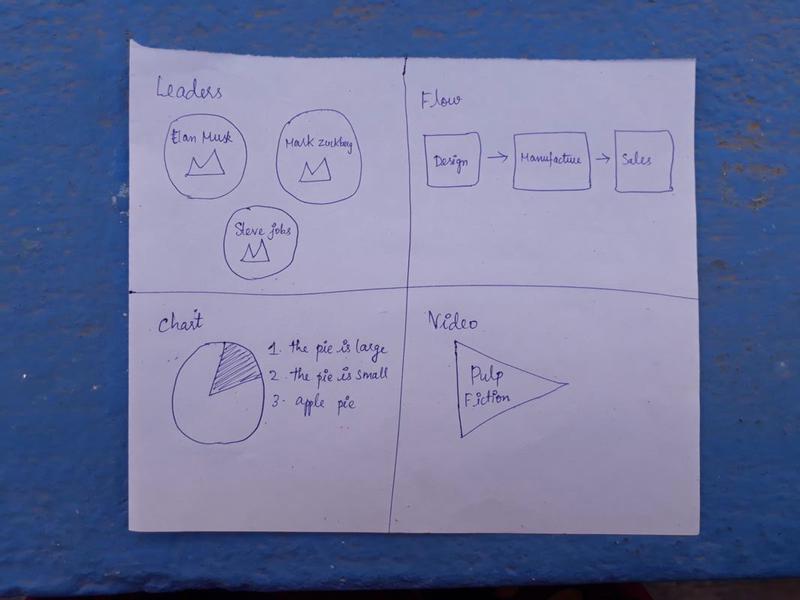 Leaders
Elan Musk
Mark Zuckberg
Steve jobs
Flow
Design
Manufacture
Sales
Chart
1. the pie is large
2. the pie is small
3. apple pie
Video
Pulp
Fiction